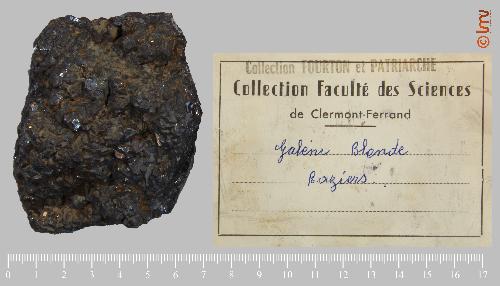 Collection TOURTON et PATRIARCHE
Collection Faculté des Sciences
de Clermont-Ferrand
Galène Blende
0 1 2 3 4 5 6 7 8 9 10 11 12 13 14 15 16 17
© lmv